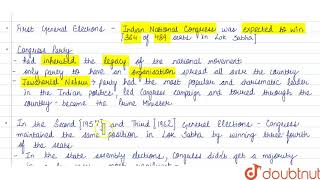 First General Elections - Indian National Congress was expected to win
[364 of 489 seats in Lok Sabha]
Congress Party
- had inherited the legacy of the national movement
- only party to have an organisation spread all over the country
- Jawaharlal Nehru → party had the most popular and charismatic leader
in the Indian politics; led Congress campaign and toured through the
country - became the Prime Minister
In the Second [1957] and Third [1962] General Elections - Congress
maintained the same position in Lok Sabha by winning three-fourth
of the seats
- In the state assembly elections, Congress didn't get a majority
doubtnut